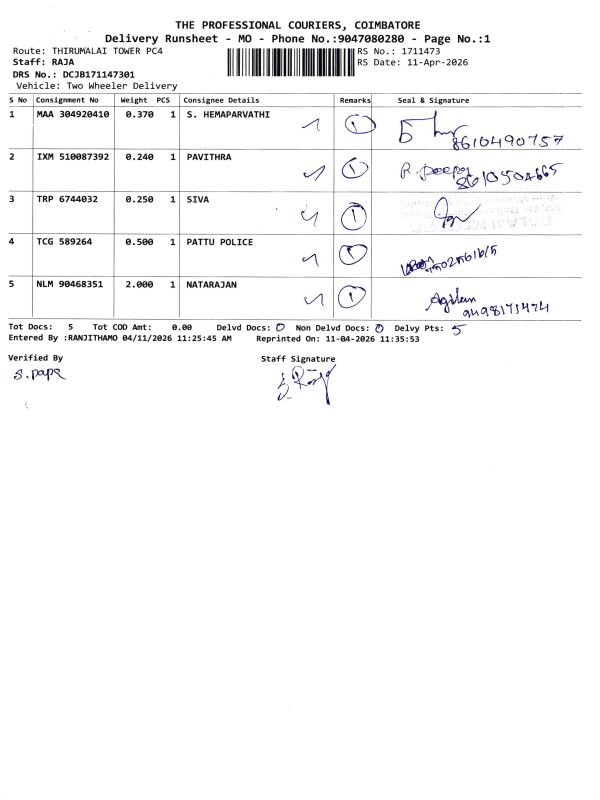 THE PROFESSIONAL COURIERS, COIMBATORE
Delivery Runsheet - MO - Phone No.:9047080280 - Page No.:1
Route: THIRUMALAI TOWER PC4 RS No.: 1711473
Staff: RAJA RS Date: 11-Apr-2026
DRS No.: DCJB171147301
Vehicle: Two Wheeler Delivery
S No Consignment No Weight PCS Consignee Details Remarks Seal & Signature
1 MAA 304920410 0.370 1 S. HEMAPARVATHI 1
8610490757
2 IXM 510087392 0.240 1 PAVITHRA 1 R.
8610504665
3 TRP 6744032 0.250 1 SIVA 1
4 TCG 589264 0.500 1 PATTU POLICE 1
5 NLM 90468351 2.000 1 NATARAJAN 1 Agilan
9498171474
Tot Docs: 5 Tot COD Amt: 0.00 Delvd Docs: 0 Non Delvd Docs: 0 Delvy Pts: 5
Entered By :RANJITHAMO 04/11/2026 11:25:45 AM Reprinted On: 11-04-2026 11:35:53
Verified By Staff Signature
S. papa